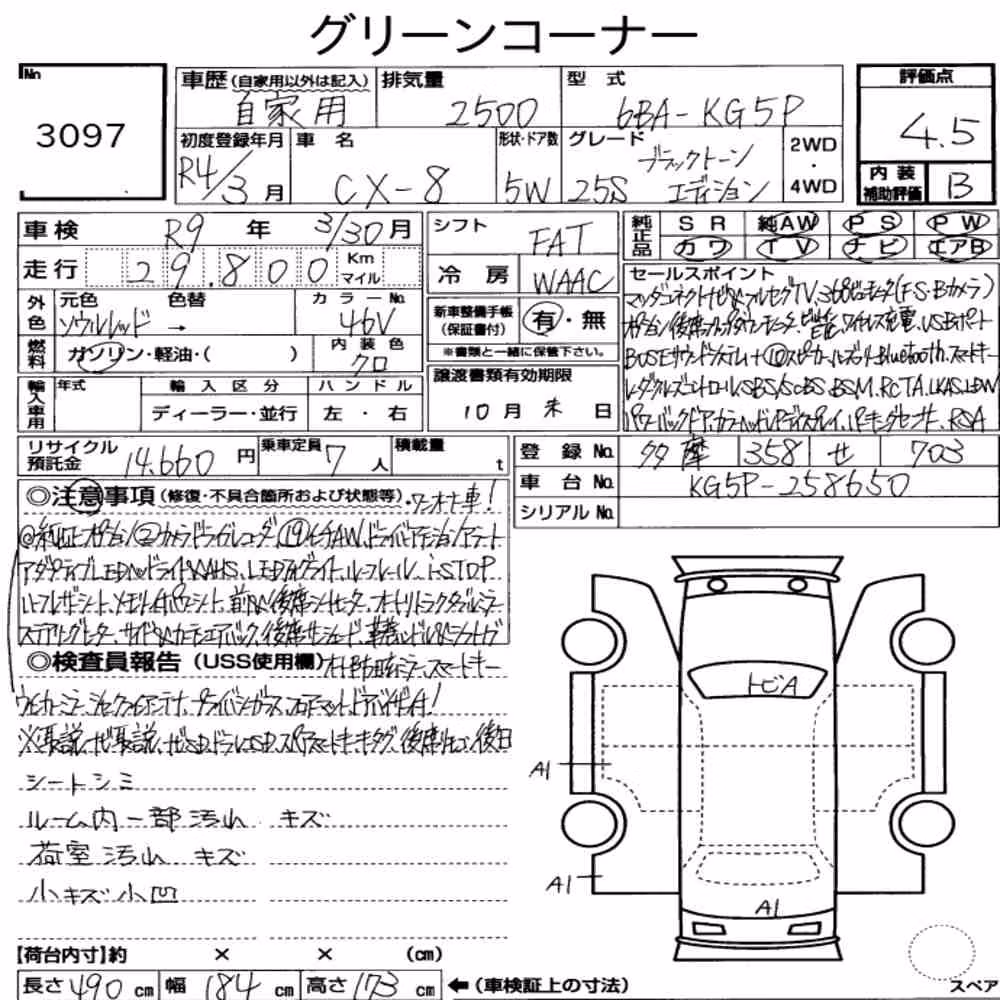 グリーンコーナー
No 3097
車歴（自家用以外は記入） 自家用
排気量 2500
型式 6BA-KG5P
評価点 4.5
初度登録年月 R4/3月
車名 CX-8
形状・ドア数 5W
グレード 25S ブラックトーンエディション
2WD・4WD
内装補助評価 B
車検 R9年 3/30月
シフト FAT
純正品 SR 純AW PS PW
カワ TV ナビ エアB
走行 29.800 Km マイル
冷房 WAAC
セールスポイント
マツダコネクトナビ&フルセグTV、360°モニター(F・S・Bカメラ)
外色 元色 ソウルレッド → 色替
カラーNo. 46V
新車整備手帳（保証書付） 有・無
※書類と一緒に保管下さい。
ワイヤレス充電、USBポート
燃料 ガソリン・軽油・( )
内装色 クロ
BOSEサウンドシステム+⑩スピーカー Bluetooth、スマートキー
譲渡書類有効期限 10月末日
レーダークルーズコントロール、SBS/SCBS、BSM、RCTA、LKAS、LDW
輸入車用 年式 輸入区分 ハンドル
ディーラー・並行 左・右
パワーバックドア、カラーヘッドUPディスプレイ、パーキングセンサー、RSA
リサイクル預託金 14.660円
乗車定員 7人
積載量 t
登録No. 多摩 358 せ 703
車台No. KG5P-258650
シリアルNo.
◎注意事項（修復・不具合箇所および状態等）・ワンオーナー車!
◎純正オプション②カメラドライブレコーダー、⑲インチAW、
アダプティブLEDヘッドライト&AHS、LEDフォグライト、ルーフレール、i-STOP
ハーフレザーシート、メモリー付パワーシート、前&後席シートヒーター、オートリトラクタブルミラー
ステアリングヒーター、サイド&カーテンエアバック、後席サンシェード、革巻ハンドル&シフトノブ
◎検査員報告（USS使用欄） オート防眩ミラー、スマートキー
ウィンカーミラー、シャークフィンアンテナ、プライバシーガラス、フロアマット、ドアバイザー付!
※取説、ナビ取説、ナビSD、ドラレコSD、スペアスマートキー、キータグ、後席リモコン後日
シートシミ
ルーム内一部汚れ キズ
荷室汚れ キズ
小キズ小凹
トビA
A1
A1
A1
【荷台内寸】約 × × (cm)
長さ 490 cm 幅 184 cm 高さ 173 cm ←（車検証上の寸法）
スペア